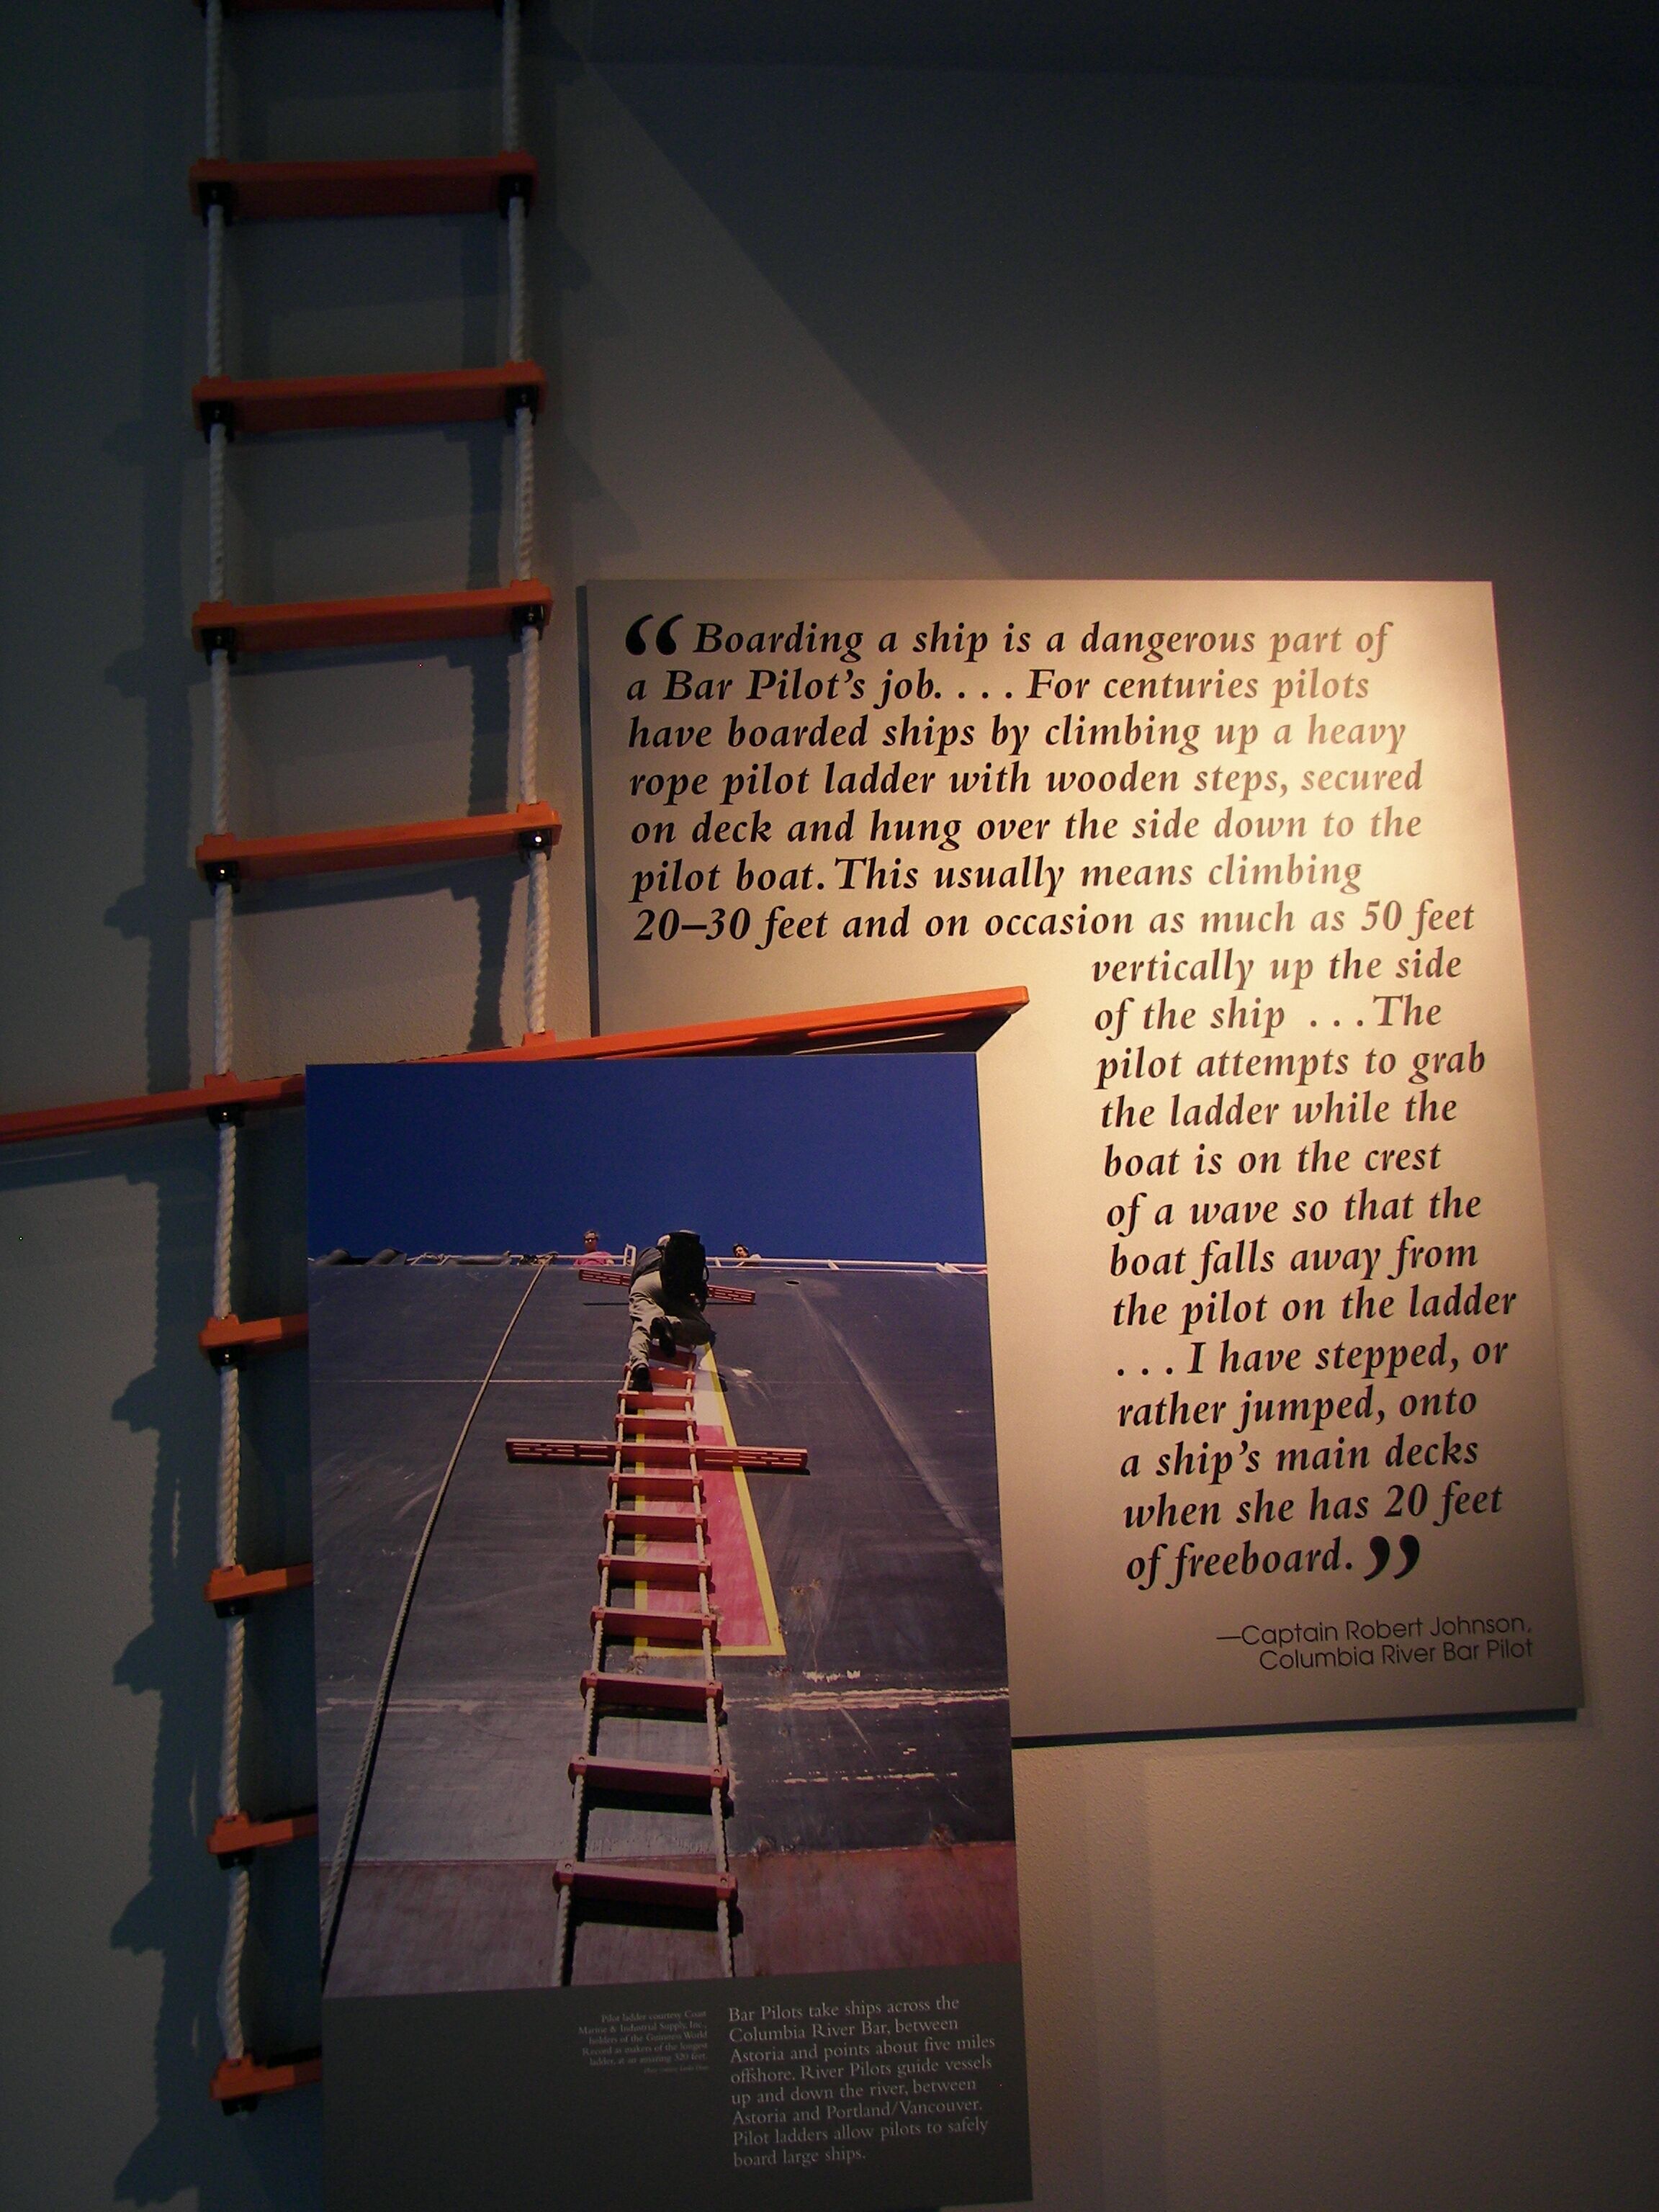 “Boarding a ship is a dangerous part of
a Bar Pilot’s job. . . . For centuries pilots
have boarded ships by climbing up a heavy
rope pilot ladder with wooden steps, secured
on deck and hung over the side down to the
pilot boat. This usually means climbing
20–30 feet and on occasion as much as 50 feet
vertically up the side
of the ship . . . The
pilot attempts to grab
the ladder while the
boat is on the crest
of a wave so that the
boat falls away from
the pilot on the ladder
. . . I have stepped, or
rather jumped, onto
a ship’s main decks
when she has 20 feet
of freeboard.”
—Captain Robert Johnson,
Columbia River Bar Pilot
Pilot ladder courtesy Coast
Marine & Industrial Supply, Inc.,
holders of the Guinness World
Record as makers of the longest
ladder, at an amazing 320 feet.
Bar Pilots take ships across the
Columbia River Bar, between
Astoria and points about five miles
offshore. River Pilots guide vessels
up and down the river, between
Astoria and Portland/Vancouver.
Pilot ladders allow pilots to safely
board large ships.